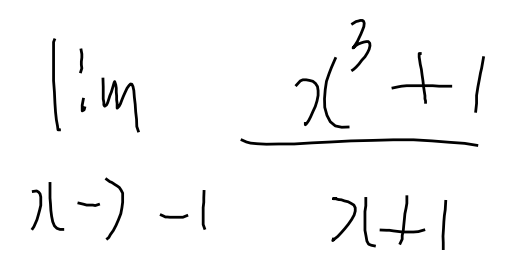 lim x³+1
x->-1 x+1